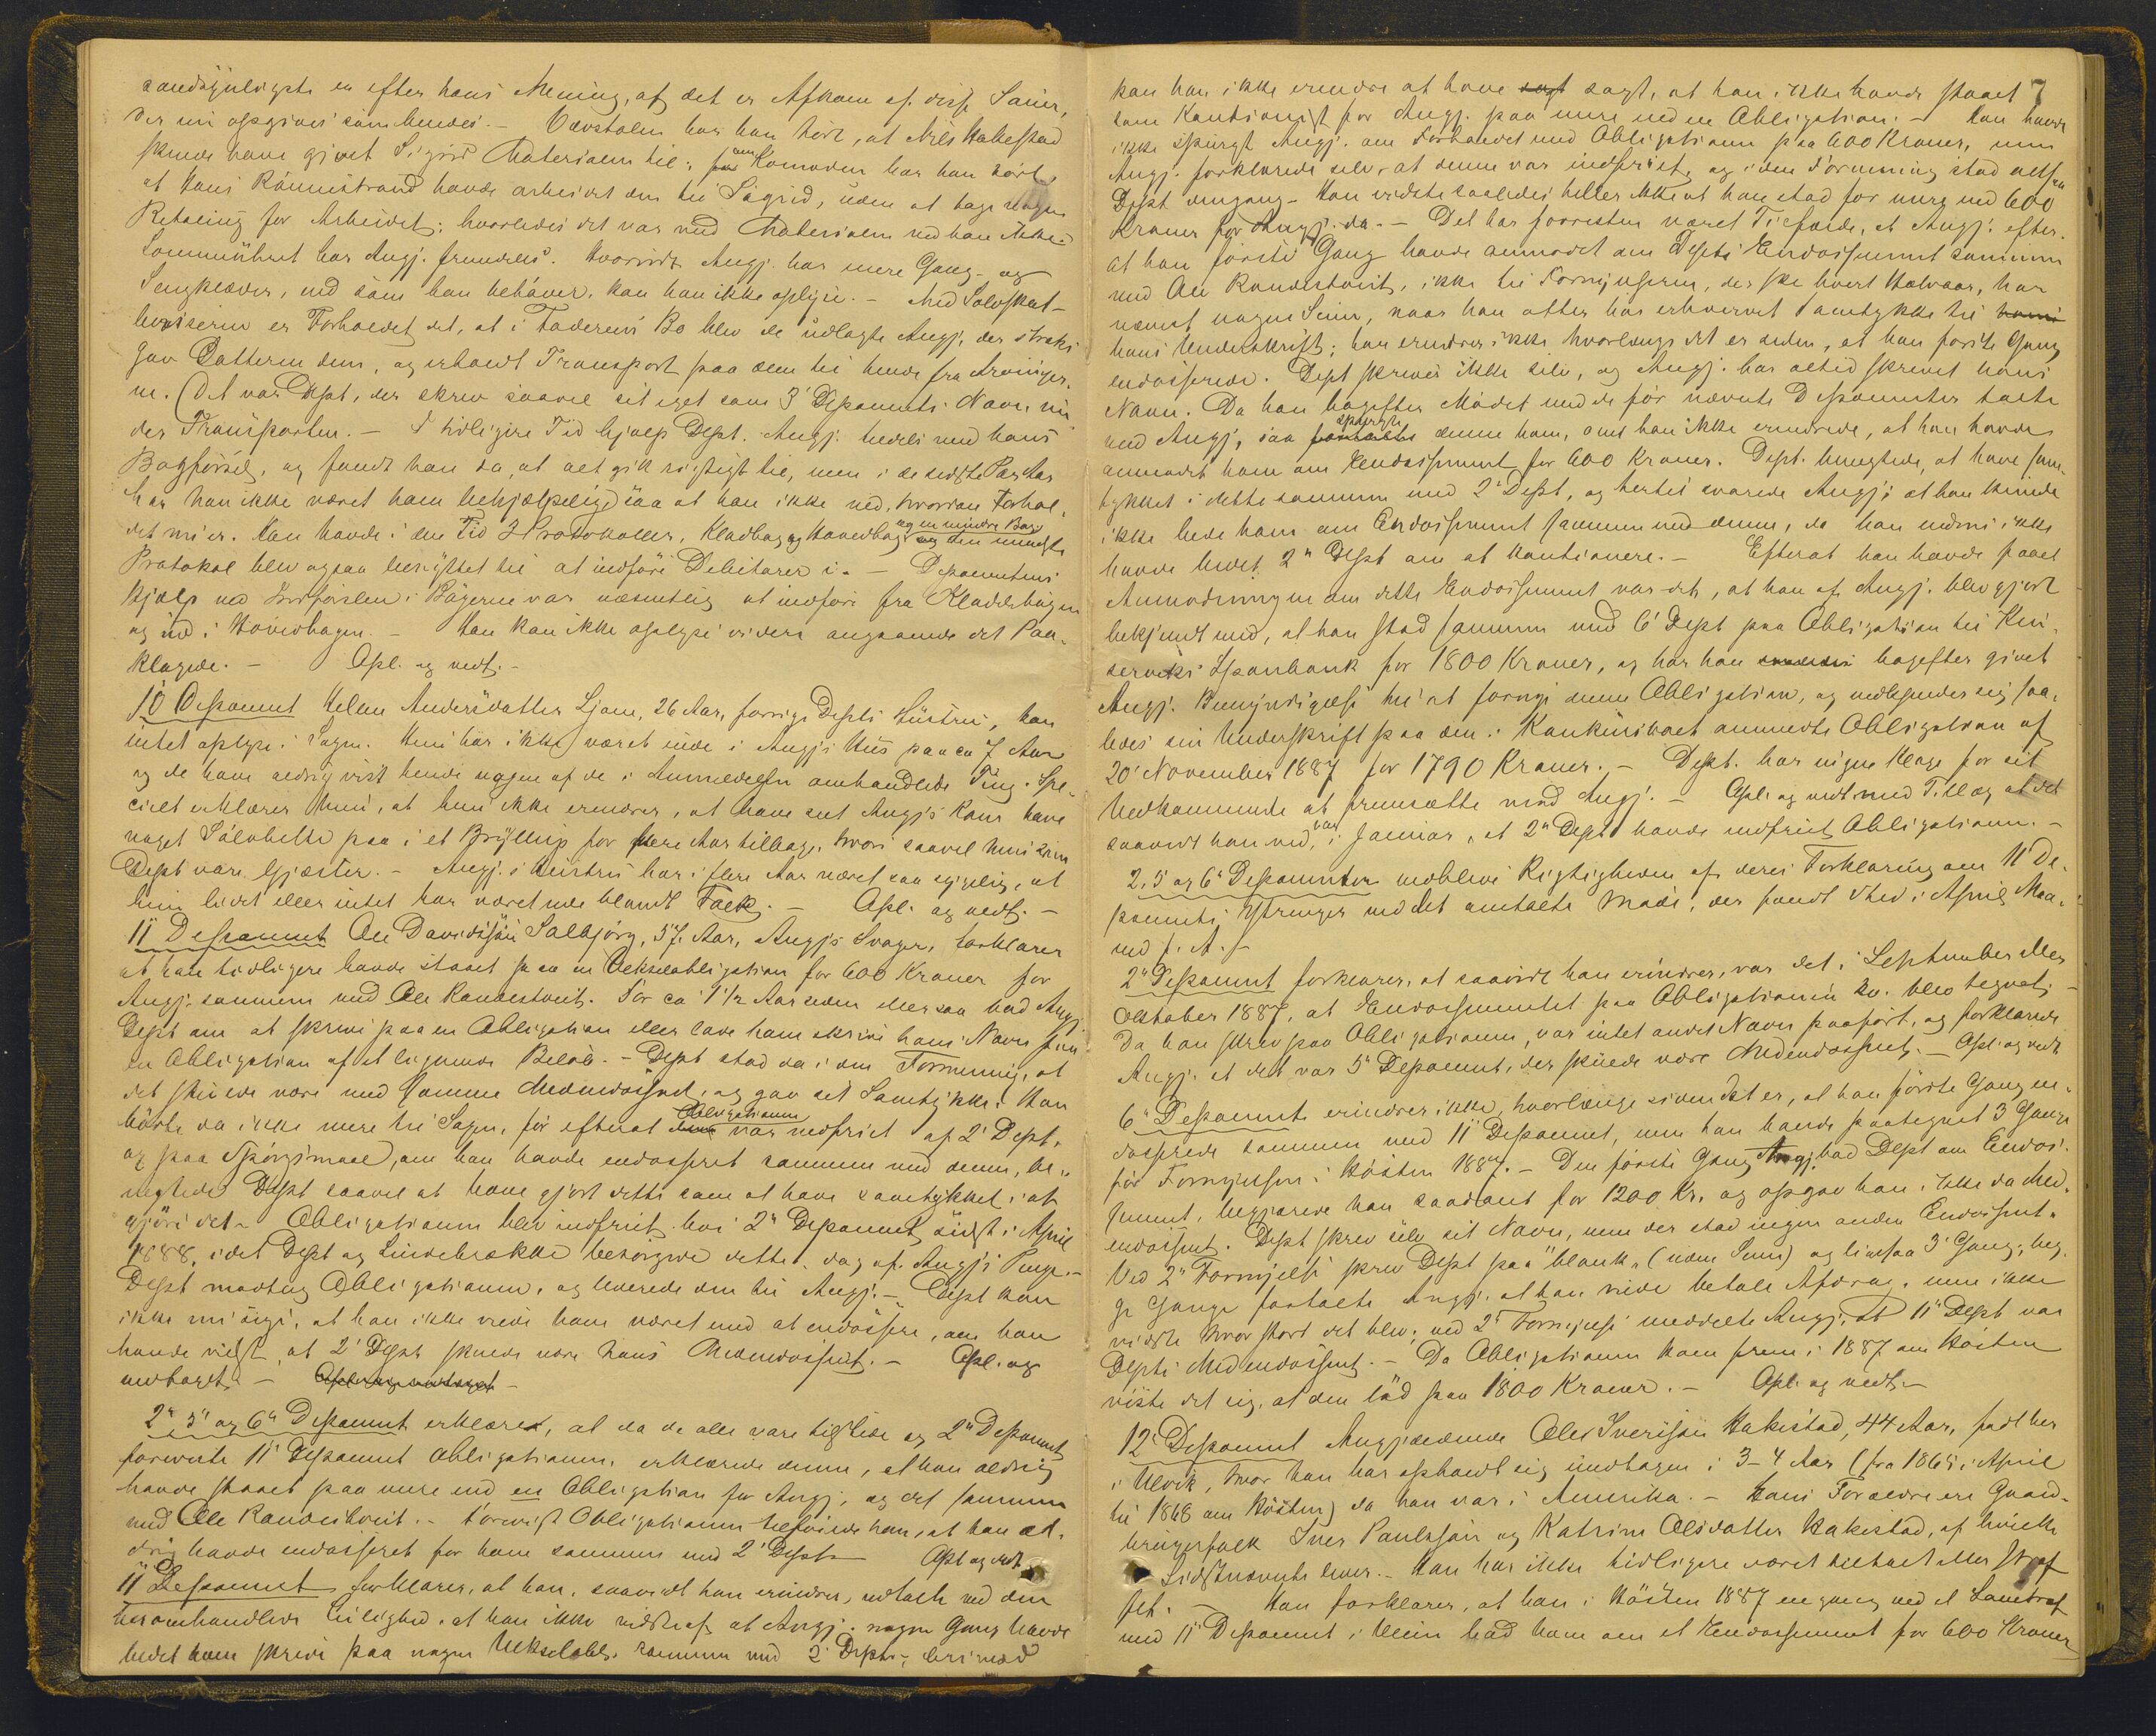 sandsynligste er efter hans Mening, at det er Afkom af disse Sauer,
der nu opgives som hendes. – Vævstolen har han hørt, at Nils Hakestad
skulde have givet Sigrid Materialen til; om Komoden har han hørt,
at Hans Rönnestrand havde arbeidet den til Sigrid, uden at tage nogen
Betaling for Arbeidet; hvorledes det var med Materialen ved han ikke.
Lommeuhret har Angj. fremdeles. Hvorvidt Angj. har mere Gang- og
Sengklæder, end som han behøver, kan han ikke oplyse. – Med Sölvskat-
beviserne er Forholdet det, at i Faderens Bo blev de udlagte Angj., der straks
gav Datteren dem, og erholdt Transport paa dem til hende fra Arvinger-
ne. (Det var Dept, der skrev saavel sit eget som 3' Deponents Navn un-
der Transporten. – I tidligere Tid hjalp Dept. Angj. hedels med hans
Bogförsel, og fandt han da, at alt gik rigtigt til, men i de sidste Par Aar
har han ikke været ham behjælpelig, saa at han ikke ved, hvordan Forhol-
det nu er. Han havde i den Tid 3 Protokoller, Kladbog og Hovedbog og en mindre Bog, den mindste
Protokol blev ogsaa benyttet til at indföre Debitorer i. – Deponentens
Hjælp ved Indförslen i Bögerne var væsentlig at indföre fra Kladebogen
og ind i Hovedbogen. – Han kan ikke oplyse videre angaaende det Paa-
klagede. – Opl. og vedt. –
10 Deponent Helene Andersdatter Ljone, 26 Aar, forrige Depts Hustru, kan
intet oplyse i Sagen. Hun har ikke været inde i Angj's Hus paa ca 7 Aar
og de have aldrig vist hende nogen af de i Anmeldelsen omhandlede Ting. Spe-
cielt erklærer hun, at hun ikke erindrer, at have seet Angj's Kone have
noget Sölvbelte paa i et Bryllup for flere Aar tilbage, hvori saavel hun som
Dept vare Gjæster. – Angj.s Hustru har i flere Aar været saa sygelig, at
hun lidet eller intet har været ude blandt Folk. – Opl. og vedt. –
11" Deponent Ole Davidsön Salbjørg, 57 Aar, Angj's Svoger, forklarer
at han tidligere havde staaet paa en Vekselobligation for 600 Kroner for
Angj. sammen med Ole Randestveit. For ca 1 1/2 Aar siden eller saa bad Angj.
Dept om at skrive paa en Obligation eller lade ham skrive hans Navn paa
en Obligation af et lignende Belöb. – Dept stod da i den Formening, at
det skulde være med samme Medendossent, og gav sit Samtykke. Han
hörte da ikke mere til Sagen, för efterat Obligationen var indfriet af 2' Dept.
og paa Spörgsmaal, om han havde endosseret sammen med denne, be-
negtede Dept saavel at have gjort dette som at have samtykket i at
gjöre det. Obligationen blev indfriet hos 2" Deponent sidst i April
1888, idet Dept og Lindebrække besörgede dette, dog af Angj's Penge. –
Dept modtog Obligationen, og leverede den til Angj. – Dept kan
ikke nu sige, at han ikke vilde have været med at endossere, om han
havde vidst, at 2' Dept skulde være hans Medendossent. – Opl. og
vedtaget. – Opl og vedtaget –
2" 5" og 6" Deponent erklærer, at da de alle vare tilstede og 2" Deponent
foreviste 11" Deponent Obligationen, erklærede denne, at han aldrig
havde staaet paa mere end en Obligation for Angj., og det sammen
med Ole Randestveit. – Forevist Obligationen tilföiede han, at han al-
drig havde endosseret for ham sammen med 2' Dept – Opl og vedt.
11" Deponent forklarer, at han, saavidt han erindrer, udtalte ved den
heromhandlede Leilighed, at han ikke vidste af, at Angj. nogen Gang havde
bedet ham skrive paa nogen Vekselobl. sammen med 2' Dept, derimod
7
kan han ikke erindre at have sagt sagt, at han ikke havde staaet
som Kautionist for Angj. paa mere end en Obligation. – Han havde
ikke spurgt Angj. om Forholdet med Obligationen paa 600 Kroner, men
Angj. forklarede selv, at denne var indfriet, og i den Formening stod altsaa
Dept dengang. Han vidste saaledes heller ikke at han stod for mere end 600
Kroner for Angj. da. – Det har forresten været Tilfælde, at Angj. efter-
at han förste Gang havde anmodet om Depts Endossement sammen
med Ole Randestveit, ikke til Fornyelsen, der ske hvert Halvaar, har
nævnt nogen Sum, naar han atter har erhvervet Samtykke til hans
hans Underskrift; han erindrer ikke hvorlænge det er siden, at han förste Gang
endosserede. Dept skriver ikke selv, og Angj. har altid skrevet hans
Navn. Da han bagefter Mödet med de før nævnte Deponenter talte
med Angj., saa spurgte denne ham, om han ikke erindrede, at han havde
anmodet ham om Endossement for 600 Kroner. Dept. benegtede, at have sam-
tykket i dette sammen med 2' Dept, og hertil svarede Angj., at han kunde
ikke bede ham om Endossement sammen med denne, da han endnu ikke
havde bedet 2" Dept om at kautionere. – Efterat han havde faaet
Anmodningen om dette Endossement var det, at han af Angj. blev gjort
bekjendt med, at han stod sammen med 6' Dept paa Obligation til Kin-
serviks Sparebank for 1800 Kroner, og har han bagefter givet
Angj. Bemyndigelse til at fornye denne Obligation, og vedkjender sig saa-
ledes sin Underskrift paa den i Rankinistret anmeldte Obligation af
20' November 1887 for 1790 Kroner. – Dept. har ingen Klage for sit
Vedkommende at fremsætte mod Angj. – Opl. og vedt. med Tillæg at det
saavidt han ved, var i Januar, at 2" Dept havde indfriet Obligationen. –
2, 5 og 6" Deponenter vedblive Rigtigheden af deres Forklaring om 11" De-
ponents Ytringer ved det omtalte Möde, der fandt Sted i April Maa-
ned f. A. –
2" Deponent forklarer, at saavidt han erindrer, var det i September eller
Oktober 1887, at Endossementet paa Obligationen Lo. blev tegnet; –
Da han skrev paa Obligationen, var intet andet Navn paafört, og forklarede
Angj. at det var 5" Deponent, der skulde være Medendossent. – Opl. og vedt.
6" Deponent erindrer ikke, hvorlænge siden det er, at han förste Gang en-
dosserede sammen med 11" Deponent, men han havde paategnet 3 Gange
för Fornyelsen i Hösten 1887. – Den förste Gang Angj. bad Dept om Endos-
sement, begjærede han saadant for 1200 Kr. og opgav han ikke da Med-
endossent. Dept skrev selv sit Navn, men der stod ingen anden Endossent.
Ved 2" Fornyelse skrev Dept paa "blank" (uden Sum) og ligesaa 3' Gang; beg-
ge Gange fortalte Angj. at han vilde betale Afdrag, men ikke
vidste hvor stort det blev; ved 2' Fornyelse meddelte Angj., at 11" Dept var
Depts Medendossent. – Da Obligationen kom frem i 1887 om Hösten
viste det sig, at den löd paa 1800 Kroner. – Opl. og vedt. –
12' Deponent Angjældende Oles Sverisön Hakestad, 44 Aar, født her
i Ulvik, hvor han har opholdt sig undtagen i 3–4 Aar (fra 1865 i April
til 1868 om Hösten) da han var i Amerika. – Hans Forældre ere Gaard-
brugerfolk Iver Paulssön og Katrine Olsdatter Hakestad, af hvilke
Sidstnævnte lever. – Han har ikke tidligere været tiltalt eller straf
fet. – Han forklarer, at han i Hösten 1887 engang ved et Samtraf
med 11" Deponent i Ulvik bad ham om et Endossement for 600 Kroner